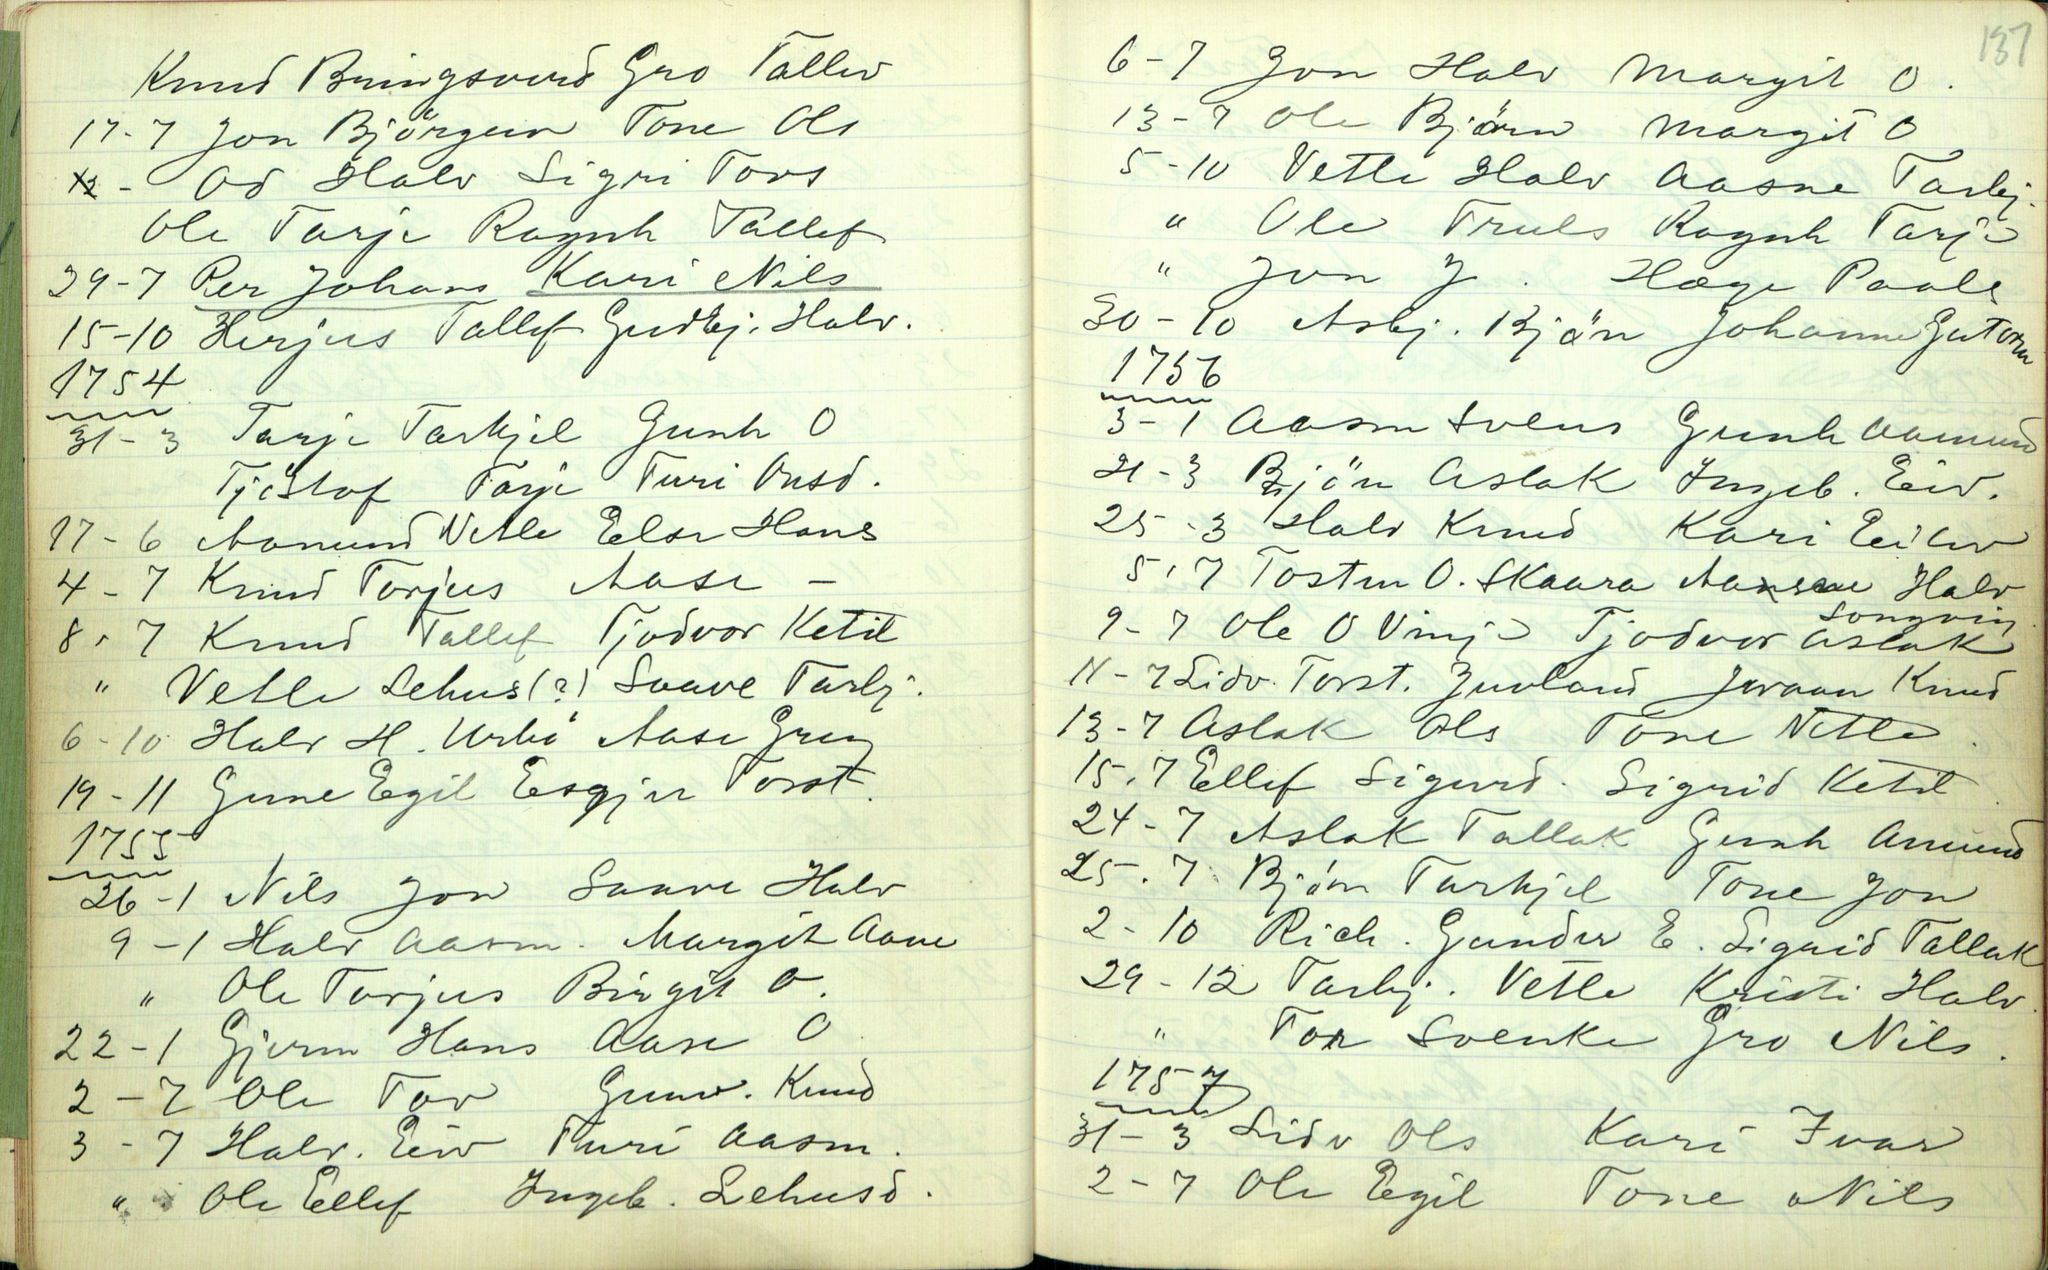 Knud Bringsverd Gro Tallev
17-7 Jon Björguv Tone Ols
- Od Halv Sigri Tovs
Ole Tarje Ragnh Tallef
29-7 Per Johans Kari Nils
15-10 Herjus Tallef Gudbj. Halv.
1754
31-3 Tarje Tarkjel Gunh O
Tjöstof Tarje Turi Ousd.
17-6 Aamund Vetle Else Hans
4-7 Knud Torjus Aase -
8-7 Knud Tallef Tjodvor Ketil
" Vetle Sehus (?) Saave Tarbj.
6-10 Halv H. Urbö Aase Greg
19-11 Gune Egil Esgjer Torst.
1755
26-1 Nils Jon Saave Halv
9-1 Halv Aasm. Margit Aane
" Ole Torjus Birgit O.
22-1 Gjerm Hans Aase O
2-7 Ole Tov Gunv. Knud
3-7 Halv. Eiv Turi Aasm.
" Ole Ellef Ingeb. Sehusd.
137
6-7 Jon Halv Margit O.
13-7 Ole Björn Margit O
5-10 Vetle Halv Aasne Tarbj.
" Ole Truls Ragnh Tarje
" Jon J. Hæge Paals
30-10 Asbj. Bjön Johanne Gutorm
1756
3-1 Aasm Svens Gunh Aamund
21-3 Bjön Aslak Ingeb. Eiv.
25-3 Halv Knud Kari Eilev
5-7 Tosten O. Skaara Aasne Halv
Songvin
9-7 Ole O Vinje Tjodvor Aslak
11-7 Lidv. Torst. Juvland Joraan Knud
13-7 Aslak Ols Tone Vetle.
15-7 Ellef Sigurd. Sigrid Ketil
24-7 Aslak Tallak Gunh Amund
25-7 Björn Tarkjel Tone Jon
2-10 Rich. Gunder E. Sigrid Tallak
29-12 Tarbj. Vetle Kristi Halv.
" Tor Svenke Gro Nils.
1757
31-3 Lidv Ols Kari Ivar
2-7 Ole Egil Tone Nils